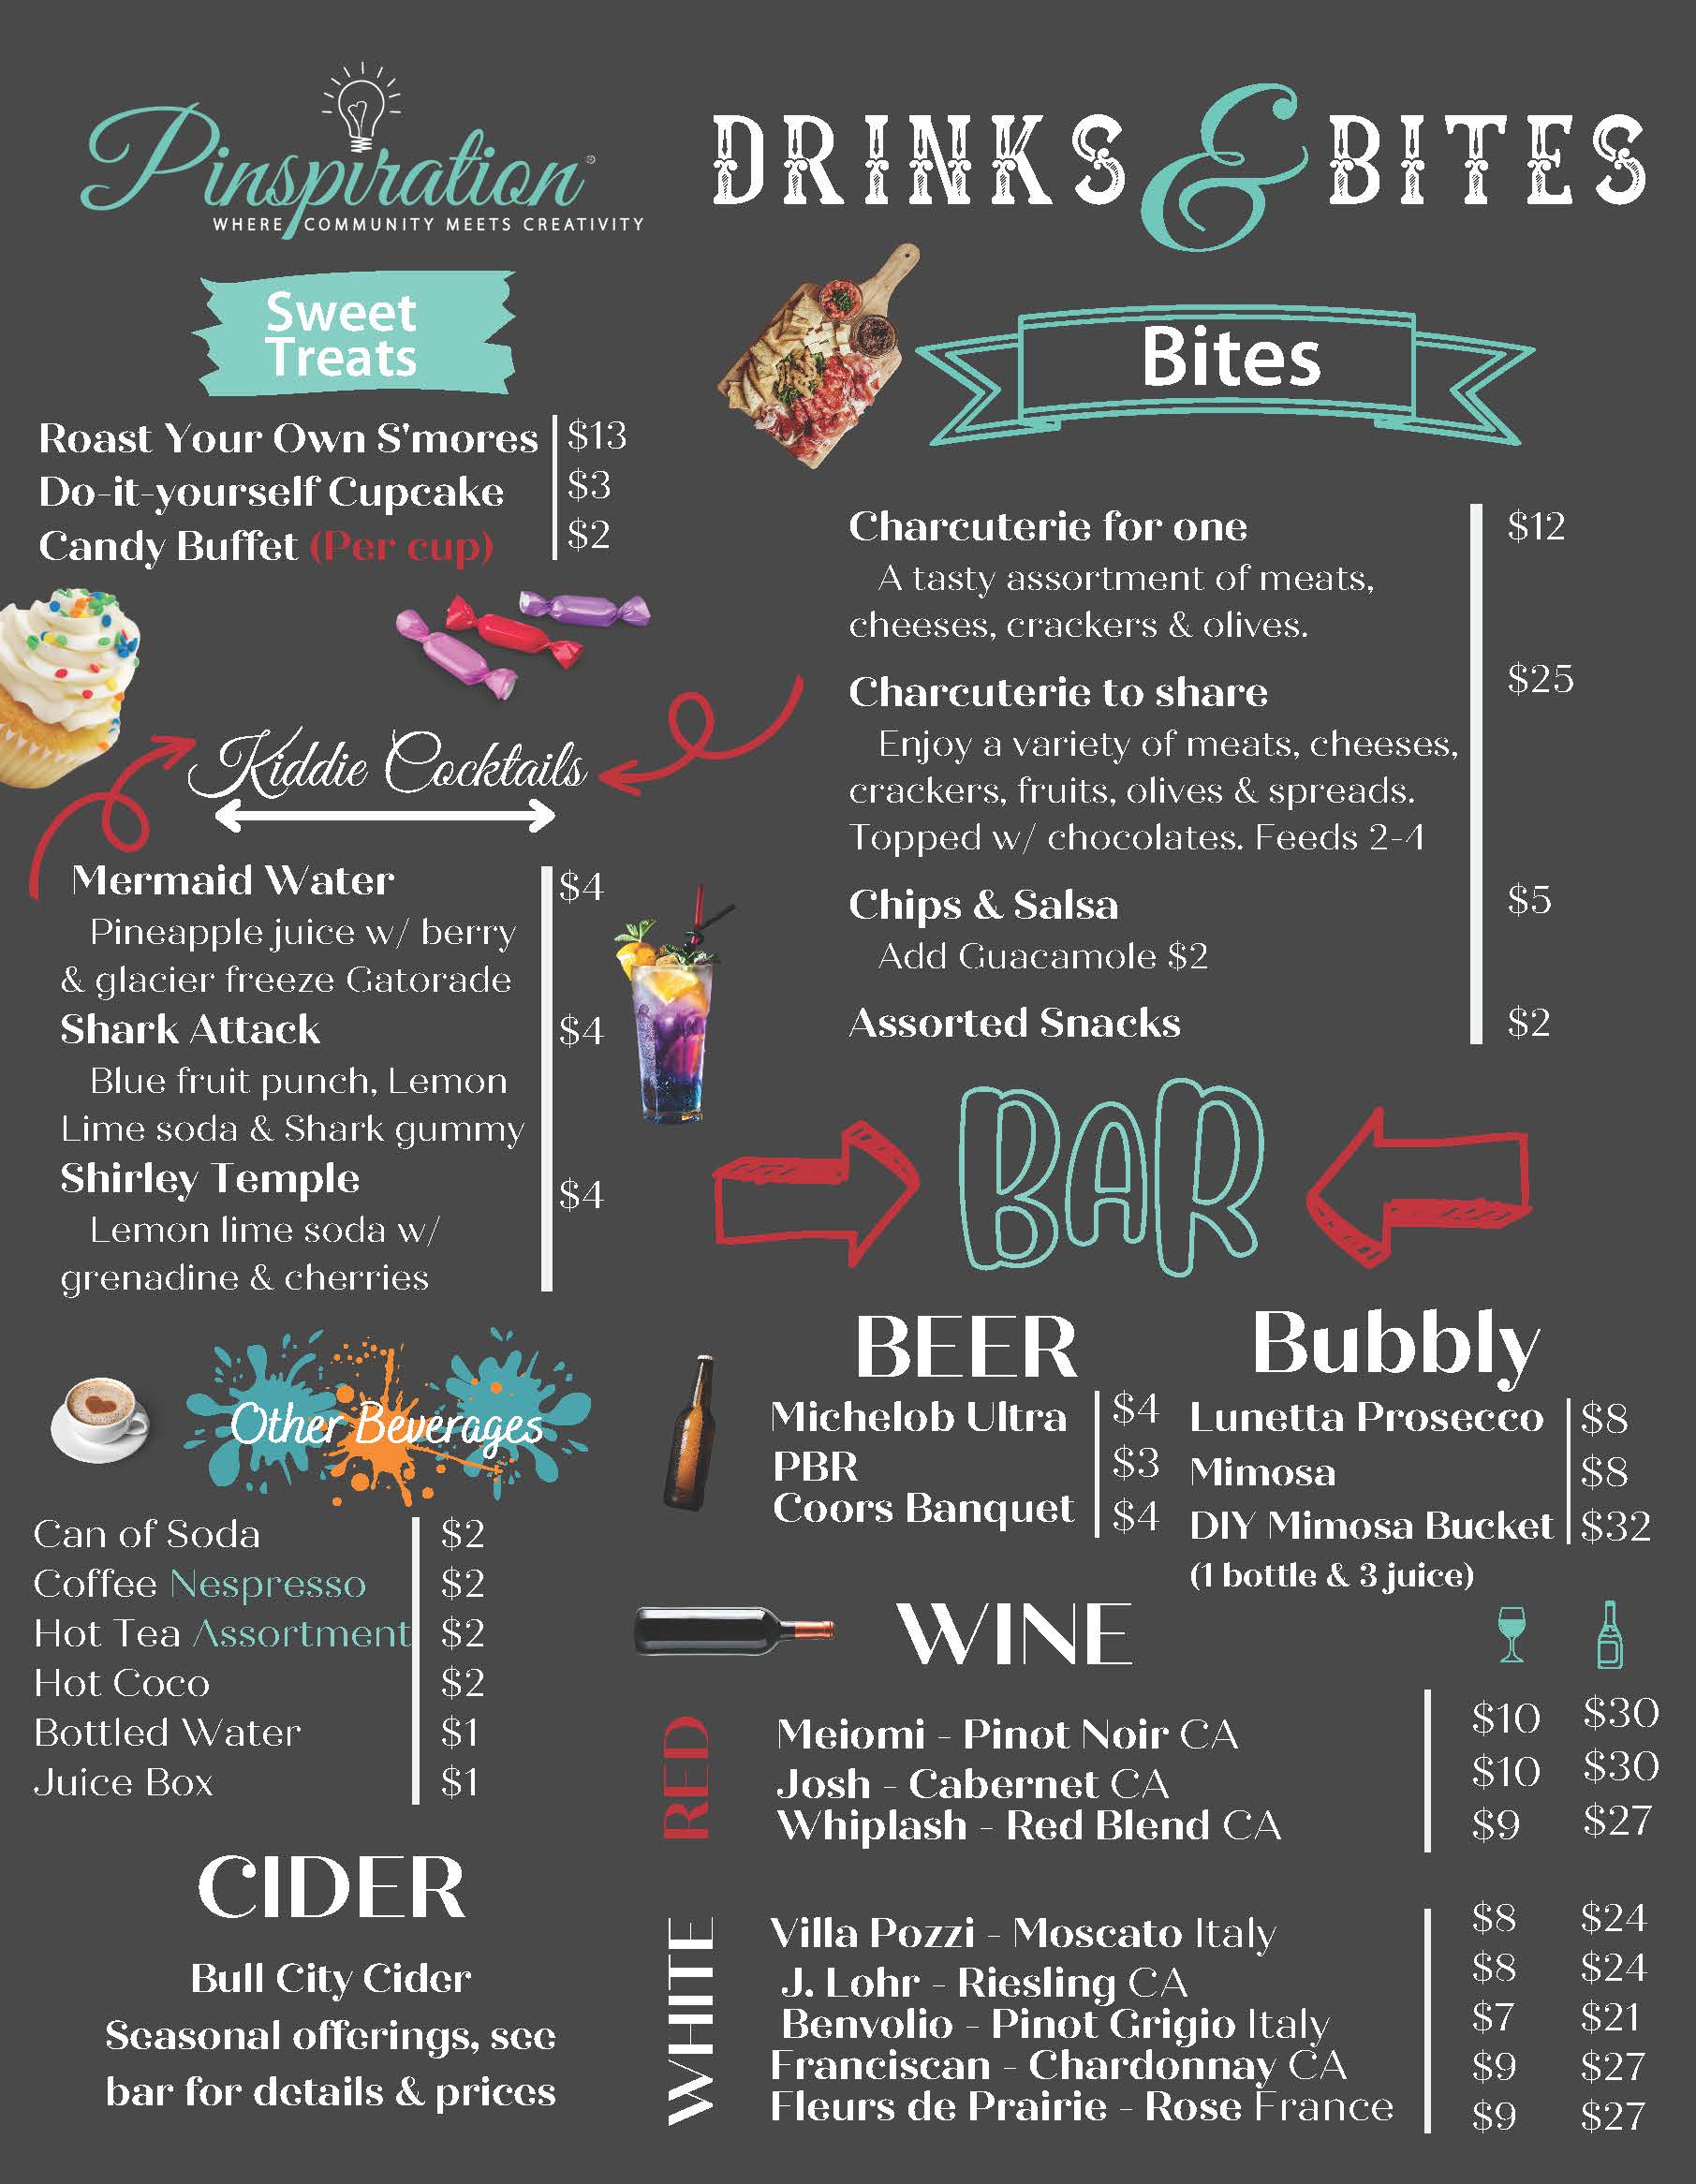 Pinspiration®
WHERE COMMUNITY MEETS CREATIVITY
DRINKS & BITES
Sweet
Treats
Roast Your Own S'mores $13
Do-it-yourself Cupcake $3
Candy Buffet (Per cup) $2
Kiddie Cocktails
Mermaid Water $4
Pineapple juice w/ berry
& glacier freeze Gatorade
Shark Attack $4
Blue fruit punch, Lemon
Lime soda & Shark gummy
Shirley Temple $4
Lemon lime soda w/
grenadine & cherries
Other Beverages
Can of Soda $2
Coffee Nespresso $2
Hot Tea Assortment $2
Hot Coco $2
Bottled Water $1
Juice Box $1
CIDER
Bull City Cider
Seasonal offerings, see
bar for details & prices
Bites
Charcuterie for one $12
A tasty assortment of meats,
cheeses, crackers & olives.
Charcuterie to share $25
Enjoy a variety of meats, cheeses,
crackers, fruits, olives & spreads.
Topped w/ chocolates. Feeds 2-4
Chips & Salsa $5
Add Guacamole $2
Assorted Snacks $2
BAR
BEER
Michelob Ultra $4
PBR $3
Coors Banquet $4
Bubbly
Lunetta Prosecco $8
Mimosa $8
DIY Mimosa Bucket $32
(1 bottle & 3 juice)
WINE
RED
Meiomi - Pinot Noir CA $10 $30
Josh - Cabernet CA $10 $30
Whiplash - Red Blend CA $9 $27
WHITE
Villa Pozzi - Moscato Italy $8 $24
J. Lohr - Riesling CA $8 $24
Benvolio - Pinot Grigio Italy $7 $21
Franciscan - Chardonnay CA $9 $27
Fleurs de Prairie - Rose France $9 $27